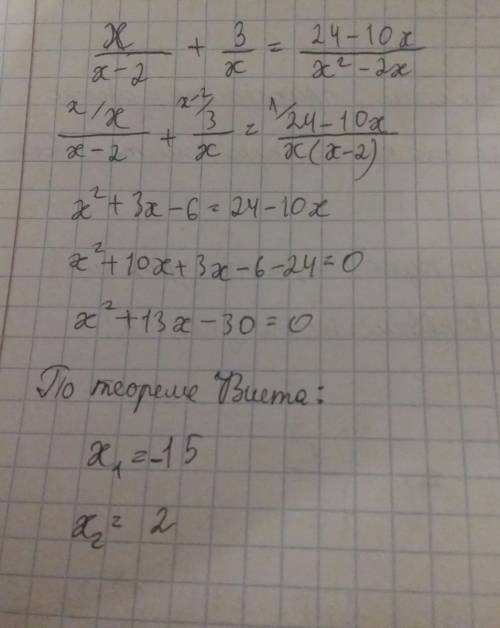 x/(x-2) + 3/x = (24-10x)/(x²-2x)
x/ x/(x-2) + x-2/ 3/x = 1/ (24-10x)/(x(x-2))
x²+3x-6=24-10x
x²+10x+3x-6-24=0
x²+13x-30=0
По теореме Виета:
x₁=-15
x₂= 2